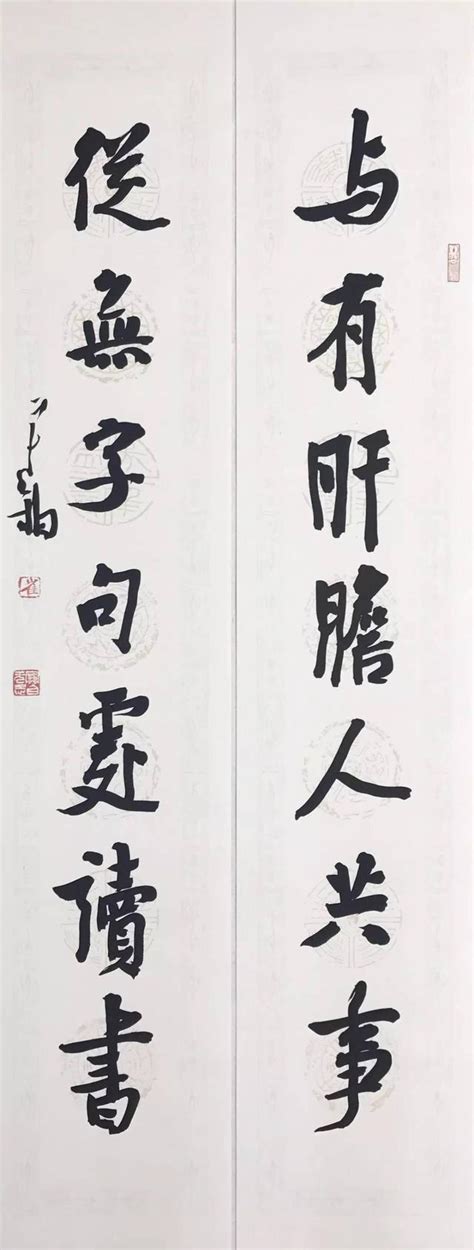 与有肝膽人共事
從無字句處讀書